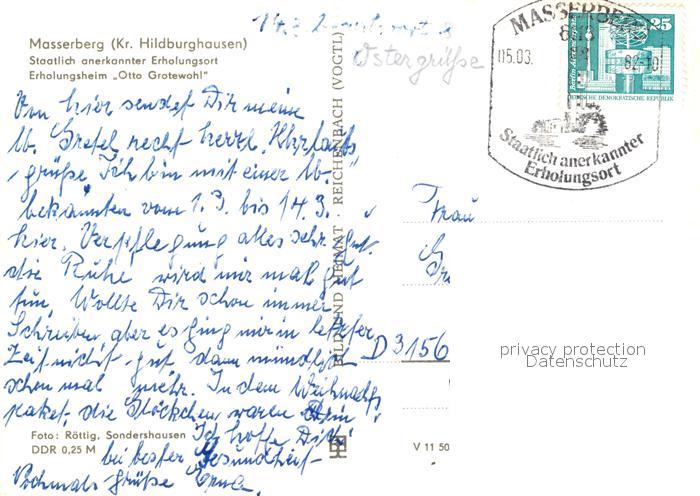 Ostergrüße
Masserberg (Kr. Hildburghausen)
Staatlich anerkannter Erholungsort
Erholungsheim „Otto Grotewohl"
Von hier sendet Dir meine
lb. Gretel recht herzl.
grüße Ich bin mit einer lb.
bekannten vom 1.3. bis 14.3.
hier. Verpflegung alles sehr gut.
die Ruhe wird mir mal gut
tun, Wollte Dir schon immer
Schreiben, aber es ging mir in letzter
Zeit nicht gut dann mündlich
schon mal mehr. In dem Weihnachts
paket, die Glöckchen waren
Ich hoffe Dich
bei bester Gesundheit
Nochmals Grüße
Foto: Röttig, Sondershausen
DDR 0,25 M
BILD UND HEIMAT · REICHENBACH (VOGTL)
V 11 50
MASSERBERG
05.03. 82-10
Staatlich anerkannter
Erholungsort
25
DEUTSCHE DEMOKRATISCHE REPUBLIK
Frau
D 3156
privacy protection
Datenschutz